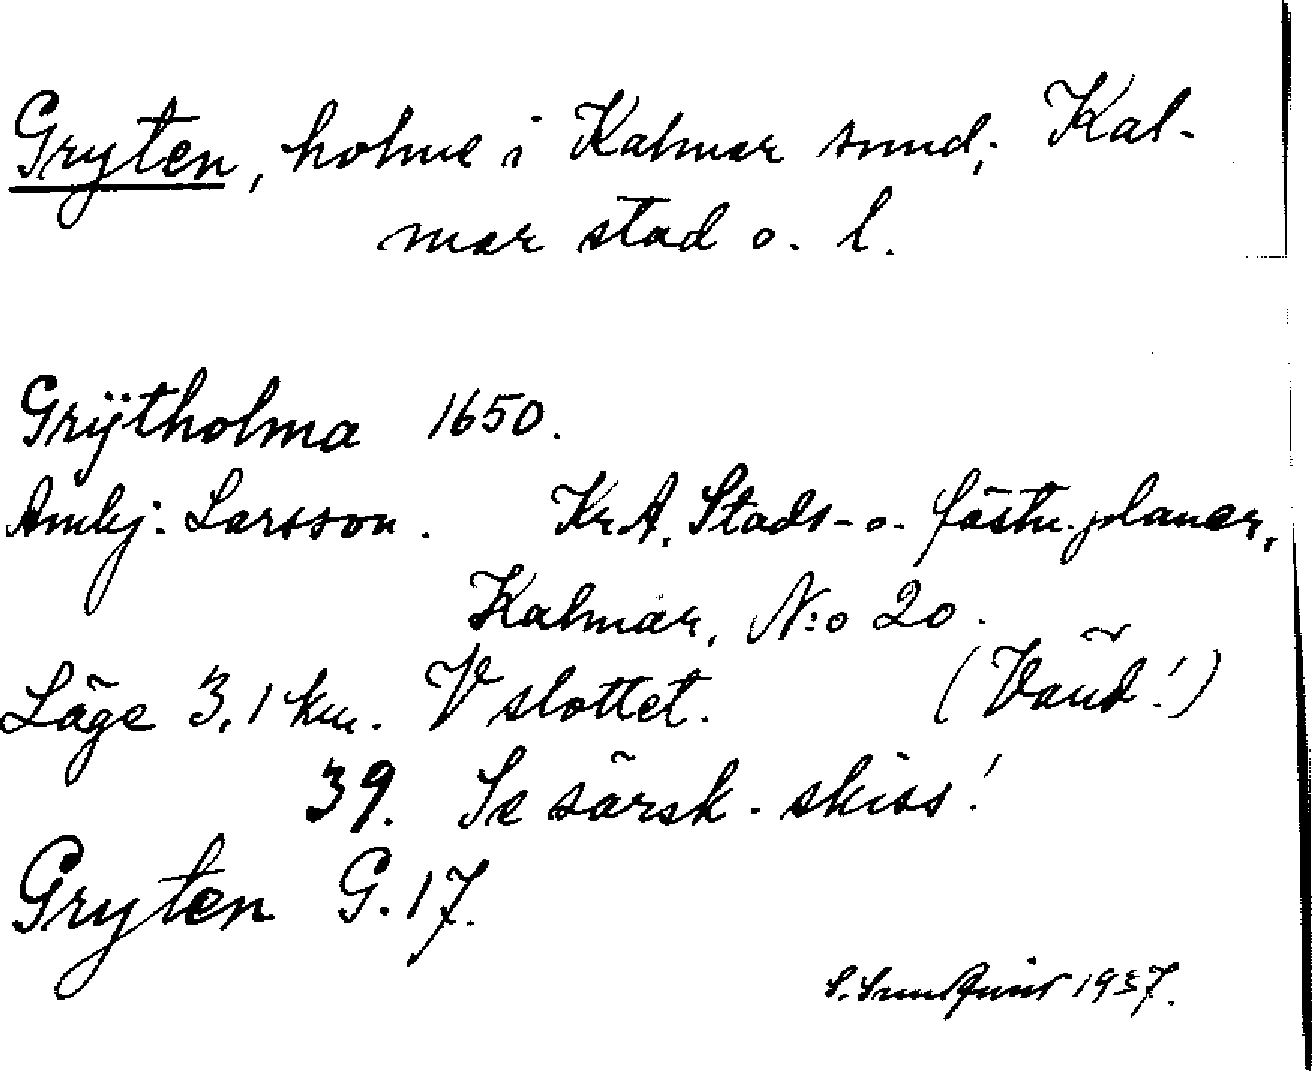 Gryten, holme i Kalmar sund; Kal-
mar stad o. l.
Grÿtholma 1650.
Ambj: Larsson. KrA. Stads- o. fästn. planer,
Kalmar, N:o 20.
Läge 3,1 km. V slottet. (Vänd!)
39. Se särsk. skiss!
Gryten G. 17.
1937.